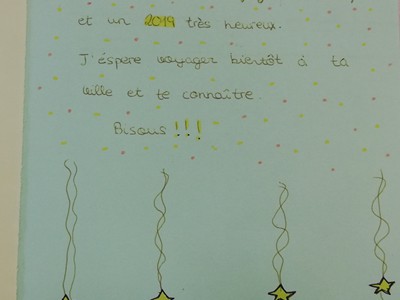 et un 2019 très heureux.
J'éspère voyager bientôt à ta
ville et te connaître.
Bisous !!!